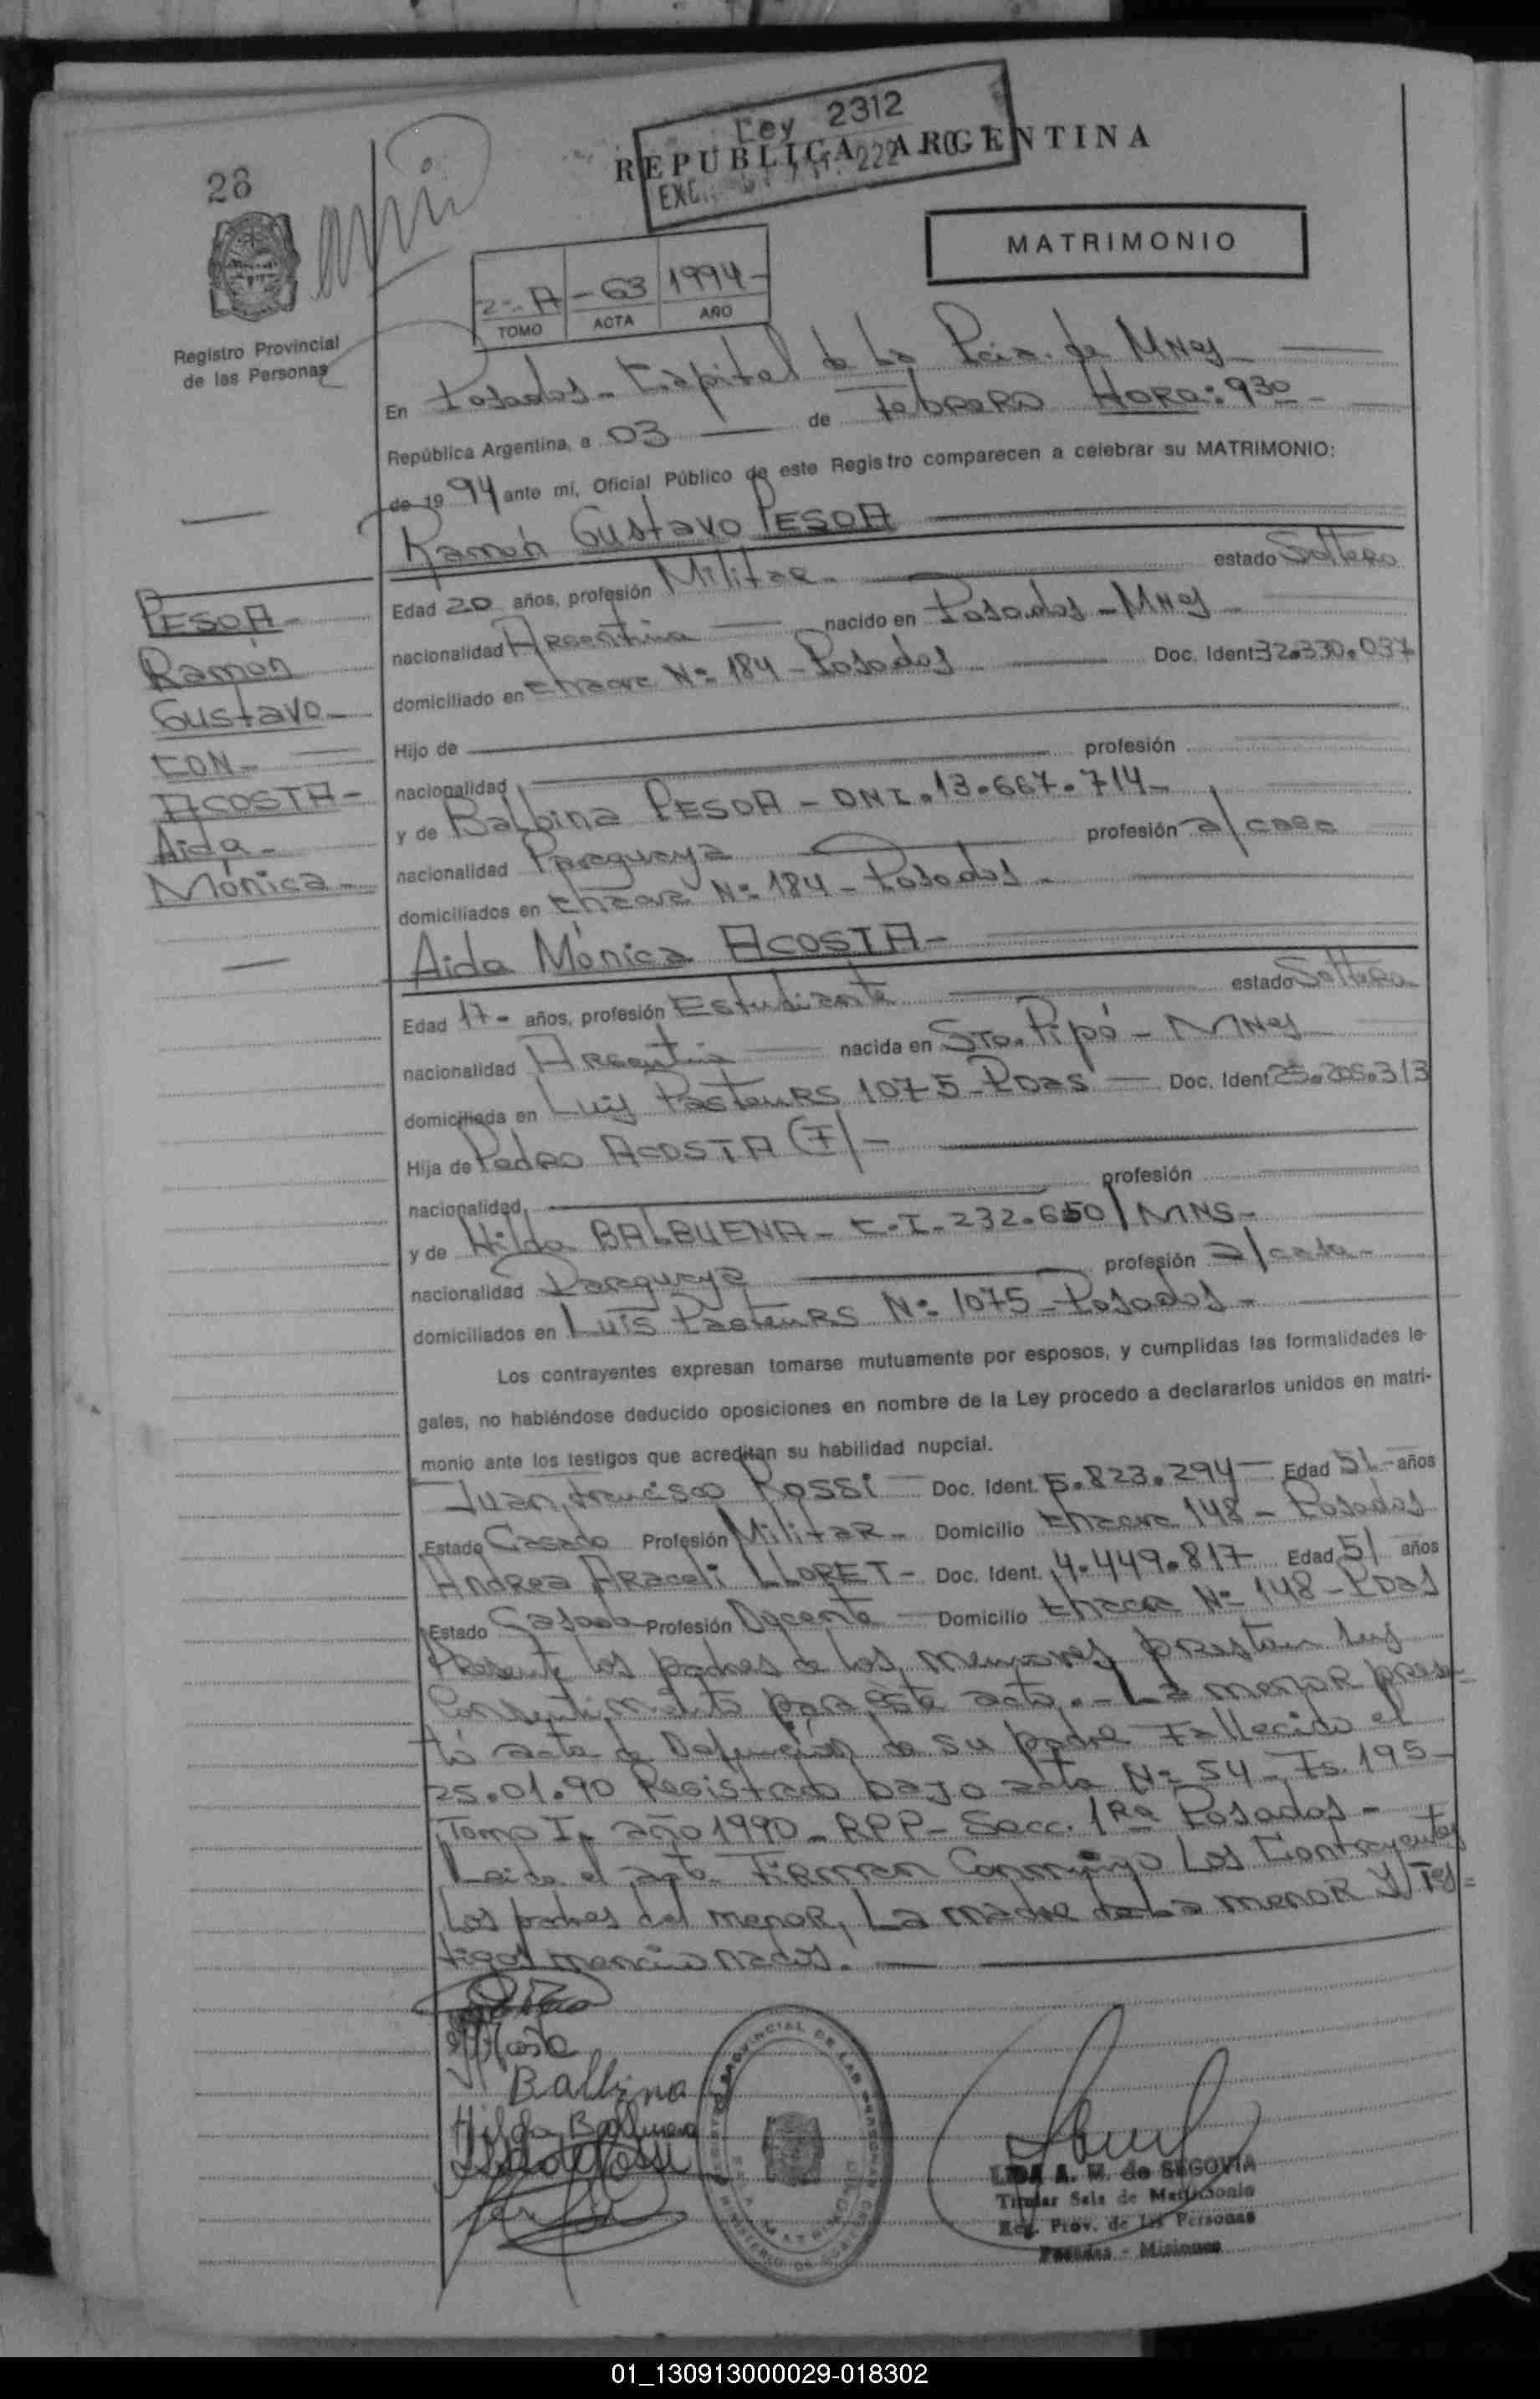 28
Ley 2312
REPUBLICA ARGENTINA
EXC. 222
MATRIMONIO
2º A - 63 1994-
TOMO ACTA AÑO
Registro Provincial
de las Personas
En Posadas - Capital de la Pcia. de Mnes
República Argentina, a 03 de Febrero HORA: 930 -
de 1994 ante mí, Oficial Público de este Registro comparecen a celebrar su MATRIMONIO:
Ramón Gustavo PESOA
Edad 20 años, profesión Militar - estado Soltero
nacionalidad Argentina nacido en Posadas - Mnes
domiciliado en Chacra Nº 184 - Posadas Doc. Ident 32.330.037
Hijo de
nacionalidad profesión
y de Balbina PESOA - DNI. 13.667.714 -
nacionalidad Paraguaya profesión a/casa
domiciliados en Chacra Nº 184 - Posadas -
Aida Mónica ACOSTA -
Edad 17 - años, profesión Estudiante estado Soltera
nacionalidad Argentina nacida en Sto. Pipó - Mnes
domiciliada en Luis Pasteurs 1075 - Pdas Doc. Ident 25.205.313
Hija de Pedro ACOSTA (F) -
nacionalidad profesión
y de Hilda BALBUENA - C.I. 232.650/MNS -
nacionalidad Paraguaya profesión a/casa -
domiciliados en Luis Pasteurs Nº 1075 - Posadas -
Los contrayentes expresan tomarse mutuamente por esposos, y cumplidas las formalidades le-
gales, no habiéndose deducido oposiciones en nombre de la Ley procedo a declararlos unidos en matri-
monio ante los testigos que acreditan su habilidad nupcial.
Juan Francisco Rossi Doc. Ident. 5.823.294 Edad 51 - años
Estado Casado Profesión Militar - Domicilio Chacra 148 - Posadas
Andrea Araceli LLORET - Doc. Ident. 4.449.817 Edad 51 años
Estado Casada Profesión Docente Domicilio Chacra Nº 148 - Pdas
Presente los padres de los menores prestan sus
Consentimiento para este acto. - La menor presen-
tó acta de Defunción de su padre Fallecido el
25.01.90 Registrado bajo acta Nº 54 - Fs. 195 -
Tomo I, año 1990 - RPP - Secc. 1Ra Posadas -
Leida el acta Firman Conmigo Los Contrayentes
Los padres del menor, La madre de la menor y Tes=
tigos mencionados.
PESOA -
Ramón
Gustavo -
CON -
ACOSTA -
Aida -
Mónica -
Balbina
Hilda Balbuena
REGISTRO PROVINCIAL DE LAS PERSONAS
MINISTERIO DE GOBIERNO
SALA MATRIMONIO
LIDA A. M. de SEGOVIA
Titular Sala de Matrimonio
Reg. Prov. de las Personas
Posadas - Misiones
01_130913000029-018302